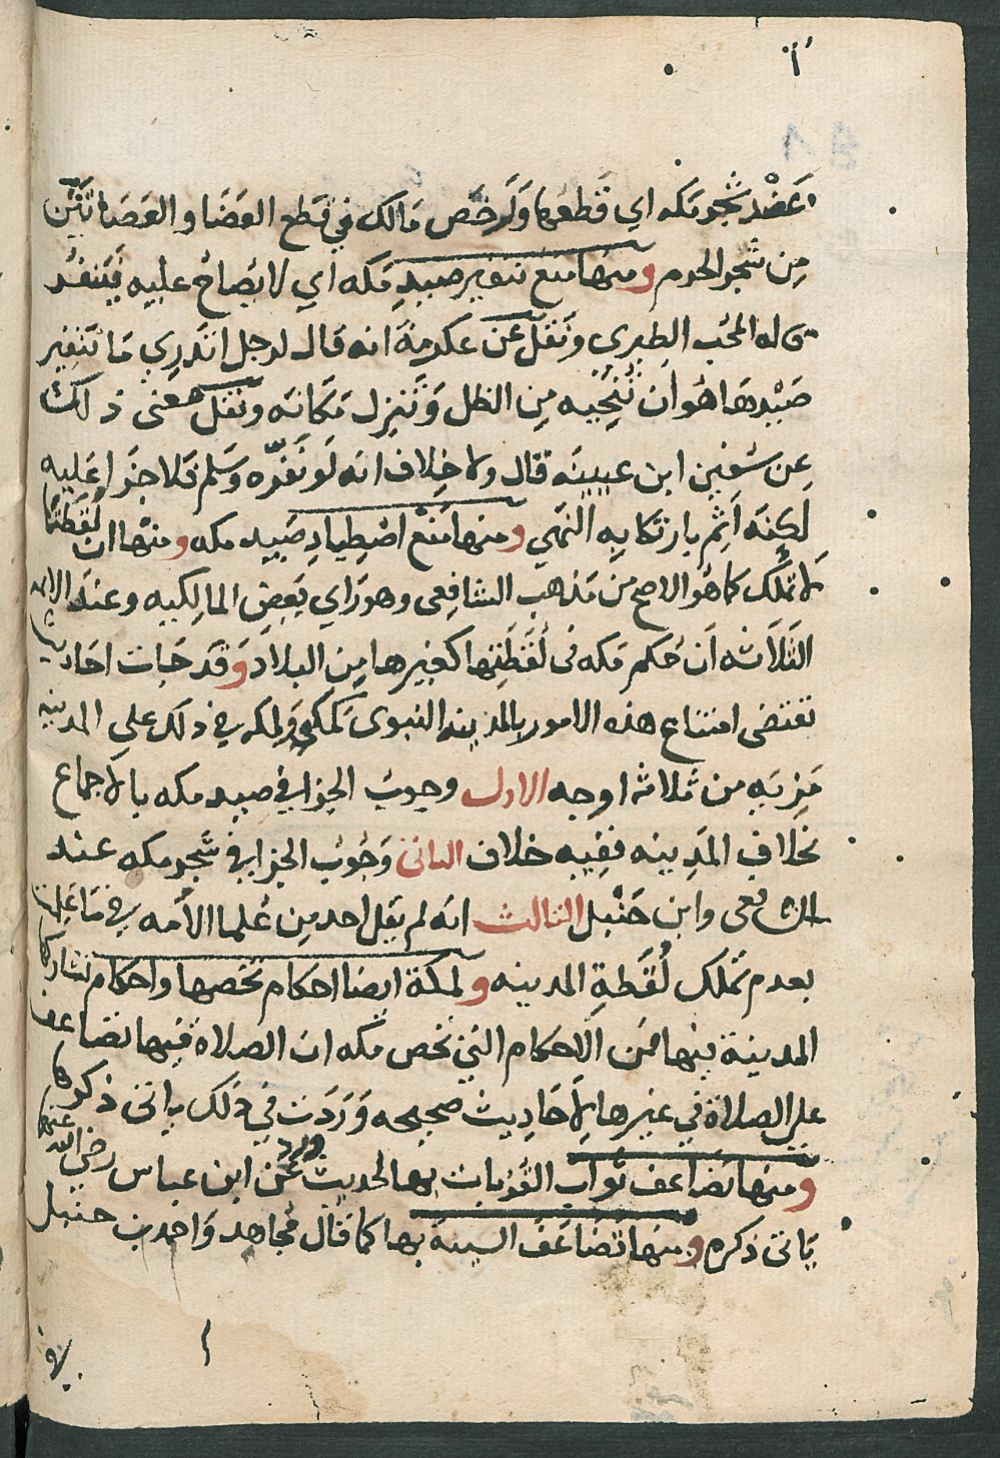 عَضْد شَجر مَكه اي قَطعها وَلَم رخّص مَالك في قطع العَصَا والعَصَاتَيْن
مِن شجر الحرم ومنها مَنع تنفير صيد مَكه اي لا يُصَاحُ عليه فَيَنفر
قاله المحُب الطبري ونَقَل عَن عكرمة انه قال لرجل اتَدرِي مَا تنفِير
صَيْدهَا هُو ان تُنَحِّيه مِن الظل وَتَنزل مَكَانَه ونَقل معنى ذلك
عِن سُفين ابن عيينه قال ولا خِلاف انه لَو نَفّره وَسَلم فَلا جَزا عَليه
لكِنه اَثِم بارتكابه النَهي ومنها مَنْع اصْطِيادِ صَيد مكه ومنها ان لُقَطَتَها
لا تُمْلك كما هُو الاصح من مَذهب الشافِعى وهو رَاي بَعض المالِكيه وعند الايمه
الثَلاثه اَن حُكم مَكه فى لُقَطَتِها كغيرها مِن البلاد وَقَد جَات احَاديث
تقتضى امتناع هذه الامور بالمدينه النبوى كمكه ولمكه في ذلك على المدينه
مَزِيَه من ثلاثه اوجه الاول وجوبُ الجزا في صيد مكه بالاجماع
بخلاف المَدِينه ففِيه خلاف الثانى وَجُوبُ الجزا في شَجر مكه عند
الشافعى وابن حَنْبل الثالث انه لم يقل احد مِن عُلما الاُمه في مَا عَلمت
بعدم تَملك لُقَطةِ المدينه ولمكة ايضا احكام تخصها واحكام تشاركها
المدينة فيها فمن الاحكام التي تخص مكه ان الصلاة فيها تضاعف
على الصلاة في غيرها لاَحَادِيث صحيحه وَرَدَت في ذَلك ياتى ذكرها
ومنها تضاعف ثَواب القُرُبات بها لحديث ورد عَن ابن عباس رضي الله عنهما
يَاتى ذكره ومنها تضَاعَفُ السيئة بها كما قَال مُجاهد وَاحمد بن حنبل